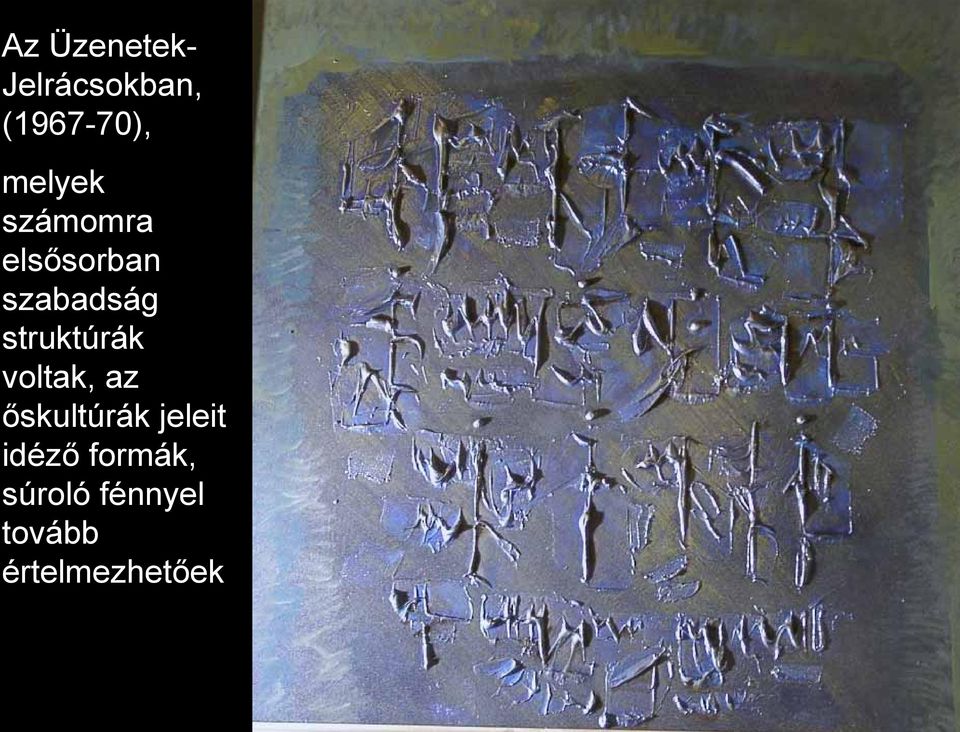 Az Üzenetek-
Jelrácsokban,
(1967-70),
melyek
számomra
elsősorban
szabadság
struktúrák
voltak, az
őskultúrák jeleit
idéző formák,
súroló fénnyel
tovább
értelmezhetőek